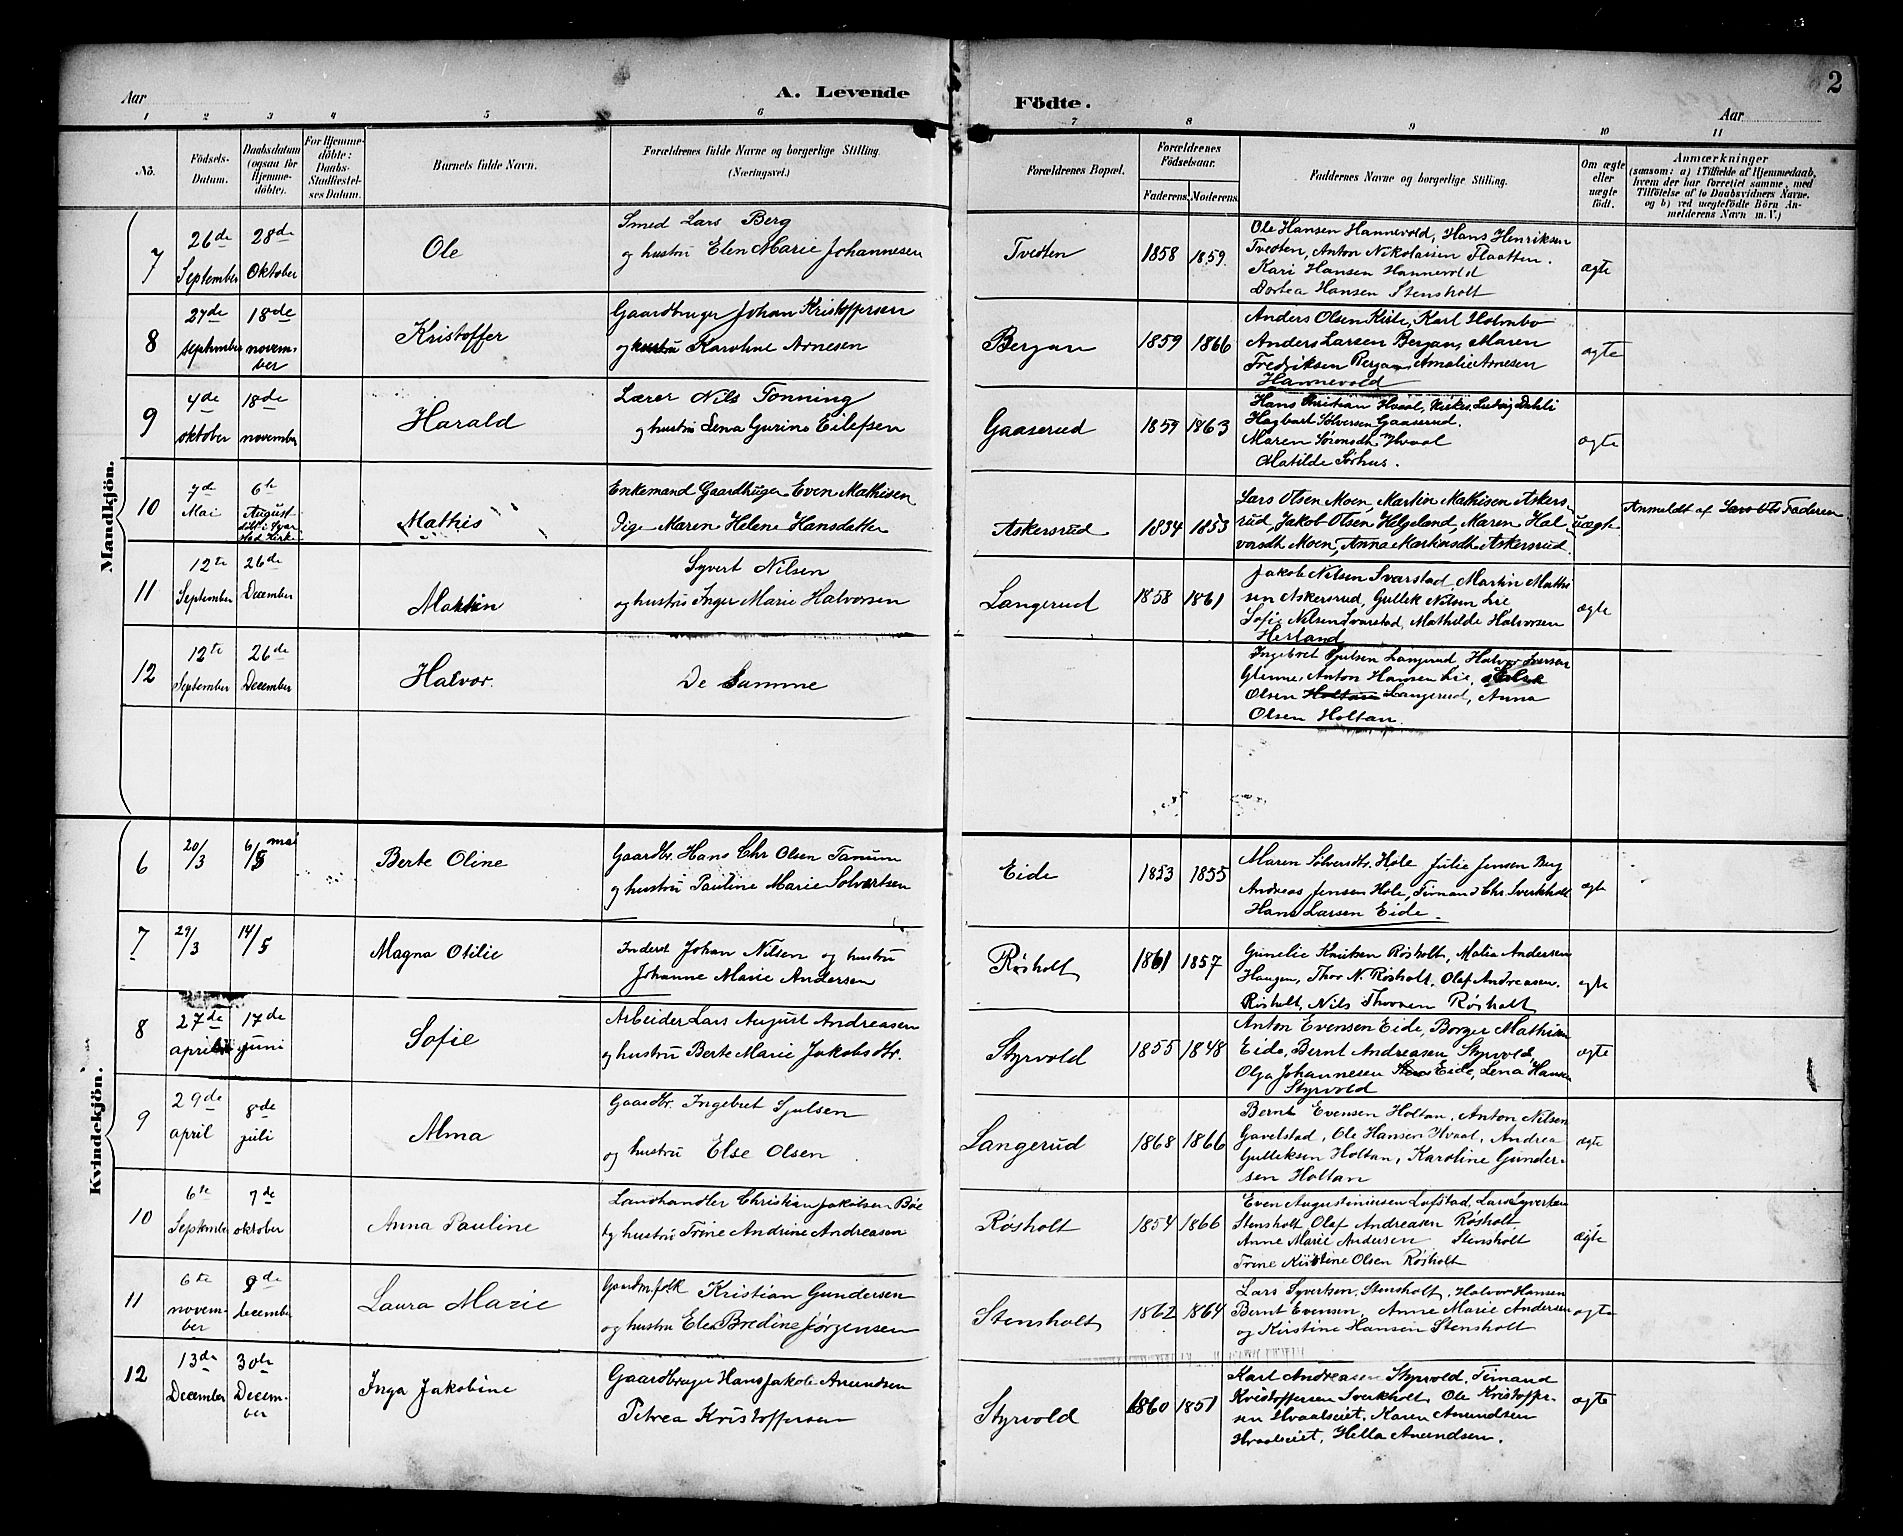 2
Aar
A. Levende
Födte.
Aar
1 2 3 4 5 6 7 8 9 10 11
No.
Födsels-Datum.
Daabsdatum (ogsaa for Hjemmedöbte).
For Hjemmedöbte: Daabs-Stadfæstelses Datum.
Barnets fulde Navn.
Forældrenes fulde Navne og borgerlige Stilling. (Næringsvei.)
Forældrenes Bopæl.
Forældrenes Födselsaar.
Faderens. Moderens.
Faddernes Navne og borgerlige Stilling.
Om ægte eller uægte födt.
Anmærkninger
(saasom: a) i Tilfælde af Hjemmedaab,
hvem der har forrettet samme, med
Tilföielse af to Daabsvidners Navne,
og b) ved uægtefödte Börn An-
melderens Navn m. V.)
Mandkjön.
7
26de September
28de Oktober
Ole
Smed Lars Berg
og hustru Elen Marie Johannesen
Tvedten
1858 1859
Ole Hansen Hannevold, Hans Henriksen
Tvedten, Anton Nikolaisen Flaatten.
Kari Hansen Hannevold
Dortea Hansen Stensholt
ægte
8
27de september
18de november
Kristoffer
Gaardbruger Johan Kristoffersen
og hustru Karoline Arnesen
Bergan
1859 1866
Anders Olsen Kiste, Karl Holmbo
Anders Larsen Bergan, Maren
Fredriksen Bergan, Amalie Arnesen
Hannevold
ægte
9
4de oktober
18de november
Harald
Lærer Nils Tonning
og hustru Lena Gurine Eilefsen
Gaaserud
1859 1863
Hans Kristian Hvaal, Kirkes. Ludvig Dahli
Hagbart Sølversen Gaaserud.
Maren Sørensdtr Hvaal
Matilde Sørhus.
ægte
10
7de Mai
6te August
döbt i Svar
stad Kirke
Mathis
Enkemand Gaardbruger Even Mathisen
Pige Maren Helene Hansdatter
Askersrud
1834 1853
Lars Olsen Moen, Martin Mathisen Askers-
rud, Jakob Olsen Helgeland, Maren Hal-
vorsdtr Moen, Anna Martinsdtr Askersrud.
uægte
Anmeldt af Faderen
11
12te September
26de December
Martin
Syvert Nilsen
og hustru Inger Marie Halvorsen
Langerud
1858 1861
Jakob Nilsen Svarstad, Martin Mathi
sen Askersrud, Gullik Nilsen Lie
Sofie Nilsen Svarstad, Mathilde Halvorsen
Herland
ægte
12
12te September
26de December
Halvor.
De Samme
Ingebret Sjulsen Langerud, Halvor Iversen
Glenne, Anton Hansen Lie,
Olsen Holtan Langerud, Anna
Olsen Holtan.
Kvindekjön.
6
20/3
6/5 mai
Berte Oline
Gaardbr. Hans Chr Olsen Tanum
og hustru Pauline Marie Solvertsen
Eide
1853 1855
Maren Sølversdtr. Hole Julie Jensen Berg
Andreas Jensen Hole, Finnand Chr. Sverkholt
Hans Larsen Eide.
ægte
7
29/3
14/5
Magna Otilie
Inderst Johan Nilsen og hustru
Johanne Marie Andersen
Røsholt
1861 1857
Gunelie Knutsen Røsholt, Malia Andersen
Haugen, Thor N. Røsholt, Olaf Andreasen.
Røsholt, Nils Thorsen Røsholt
ægte
8
27de april
17de juni
Sofie
Arbeider Lars August Andreasen
og hustru Berte Marie Jakobsdtr.
Styrvold
1855 1848
Anton Evensen Eide, Borger Mathisen
Eide, Bernt Andreasen Styrvold,
Olga Johannesen Eide, Lena Hansen
Styrvold
ægte
9
29de april
8de juli
Alma
Gaardbr. Ingebret Sjulsen
og hustru Else Olsen
Langerud
1868 1866
Bernt Evensen Holtan, Anton Nilsen
Gavelstad, Ole Hansen Hvaal, Andrea
Gulleksen Holtan, Karoline Gunder-
sen Holtan
ægte
10
6te September
7de oktober
Anna Pauline
Landhandler Christian Jakobsen Bøe
og hustru Trine Andrine Andreasen
Røsholt
1854 1866
Even Augustinusen Lofstad, Lars Syvertsen
Stensholt, Olaf Andreasen Røsholt
Anne Marie Andersen Stensholt
Trine Kirstine Olsen Røsholt
ægte
11
6te november
9de december
Laura Marie
Gaardm.folk Kristian Gundersen
og hustru Elen Bredine Jørgensen
Stensholt
1862 1864
Lars Syvertsen, Stensholt, Halvor Hansen
Bernt Evensen, Anne Marie Andersen
og Kirstine Hansen Stensholt
ægte
12
13de December
30te December
Inga Jakobine
Gaardbruger Hans Jakob Amundsen
Petrea Kristoffersen
Styrvold
1860 1851
Karl Andreasen Styrvold, Finnand
Kristoffersen Sverkholt, Ole Kristoffer-
sen Hvaalseiet, Karen Amundsen
Hvaalseiet, Hella Amundsen.
ægte